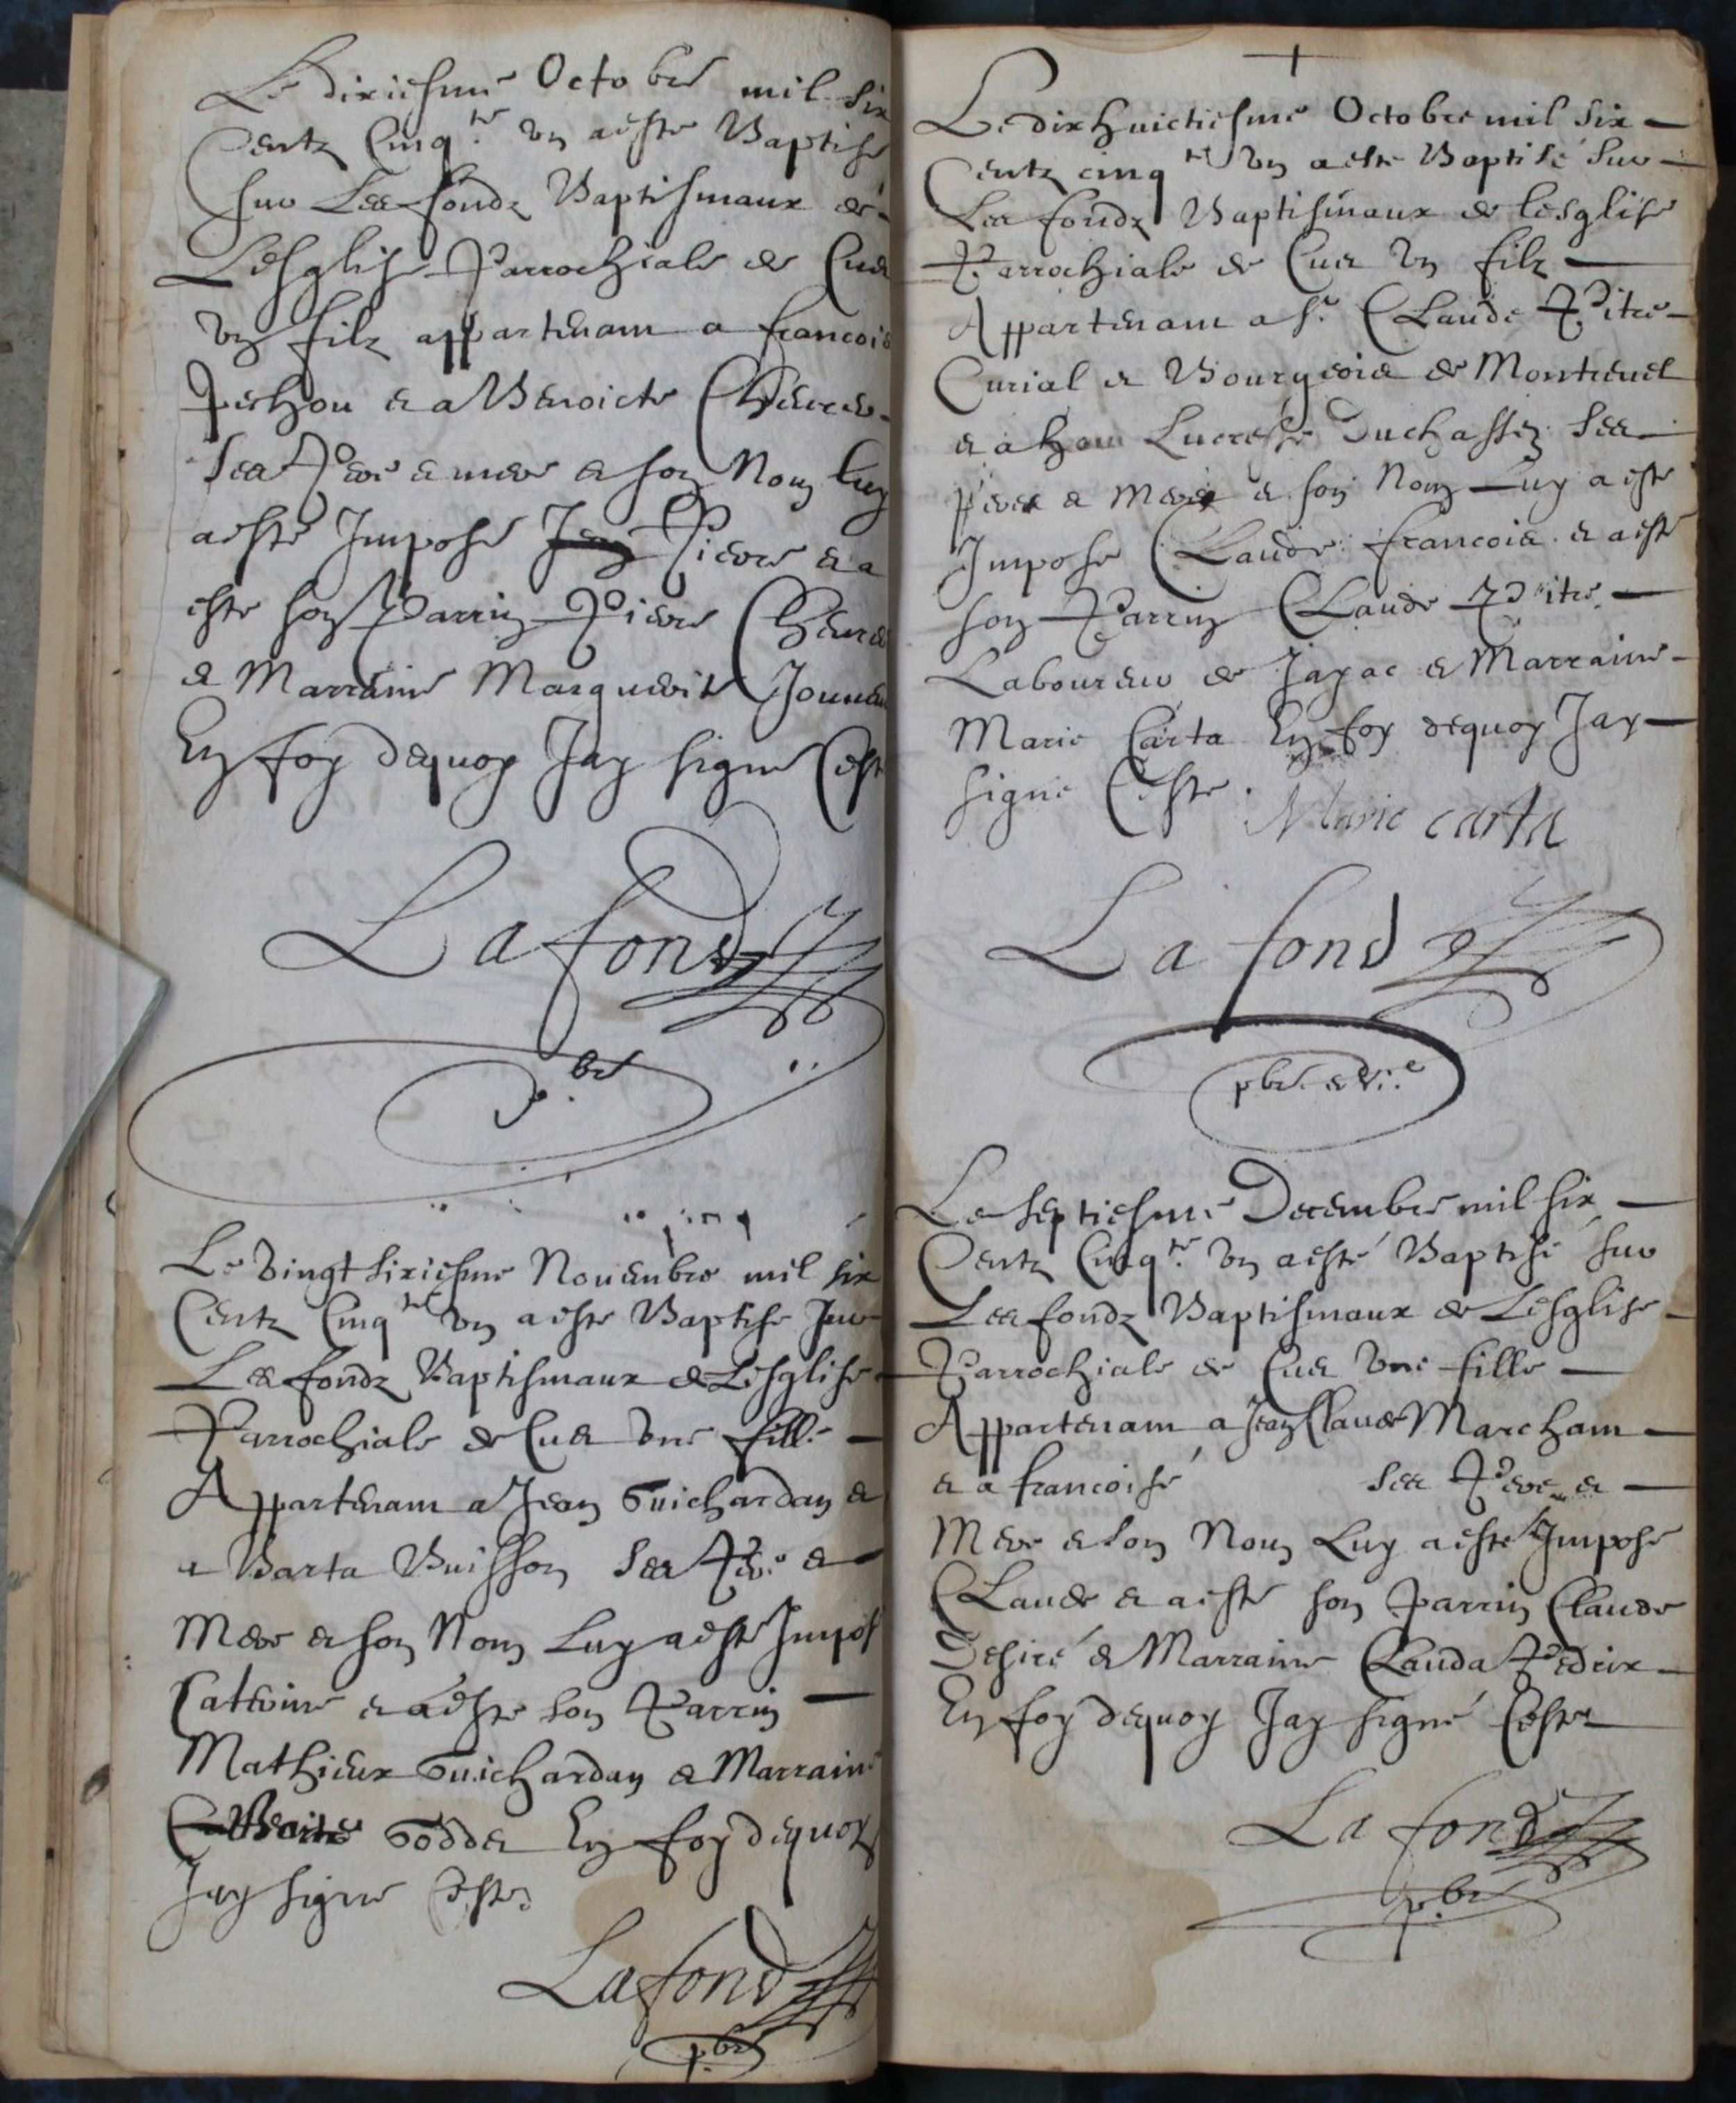 Le dixiesme Octobre mil six
Centz Cinq.te un aeste Baptise
sur Les fondz Baptismaux de
Lesglise Parrochiale de Cuet
un filz appartenant a francois
Pechou et a Benoicte
ses Pere et mere et son Nom luy
aeste Impose Jean Pierre et a
este son Parrin Pierre
et Marraine Marguerite
En foy dequoy Jay signe Ceste
Lafond
p.bre
Le vingt sixiesme Novembre mil six
Centz Cinq te un aeste Baptise sur
Les fondz Baptismaux de Lesglise
Parrochiale de Cuet une fille
Appartenant a Jean Guichardan et
a Barta Buisson ses Pere et
Mere et son Nom Luy aeste Impose
Caterine et aeste son Parrin
Mathieux Guichardan et Marraine
Goddet En foy dequoy
Jay signe Ceste
Lafond
p.bre
Le dixhuictiesme Octobre mil six
Centz cinq te un aeste Baptisé sur
Les fondz Baptismaux de lesglise
Parrochiale de Cuet un filz
Appartenant a Sr Claude Pitre
Curial et Bourgeois de Montrevel
et a hon Lucresse Duchassez ses
peres et Mere et son Nom Luy aeste
Impose Claude francois et aeste
son Parrin Claude Pitre
Laboureur de Jayac et Marraine
Marie Carta En foy dequoy Jay
signé Ceste.
Marie carta
La fond
pbre et vi.e
Le septiesme Decembre mil six
Centz Cinq.te un aesté Baptisé sur
Les fondz Baptismaux de Lesglise
Parrochiale de Cuet une fille
Appartenant a Jean Claude Marchant
et a francoise ses Pere et
Mere et son Nom Luy aeste Impose
Claude et aeste son Parrin Claude
Desiré et Marraine Clauda Pedrix
En foy dequoy Jay signé Ceste
La fond
p.bre